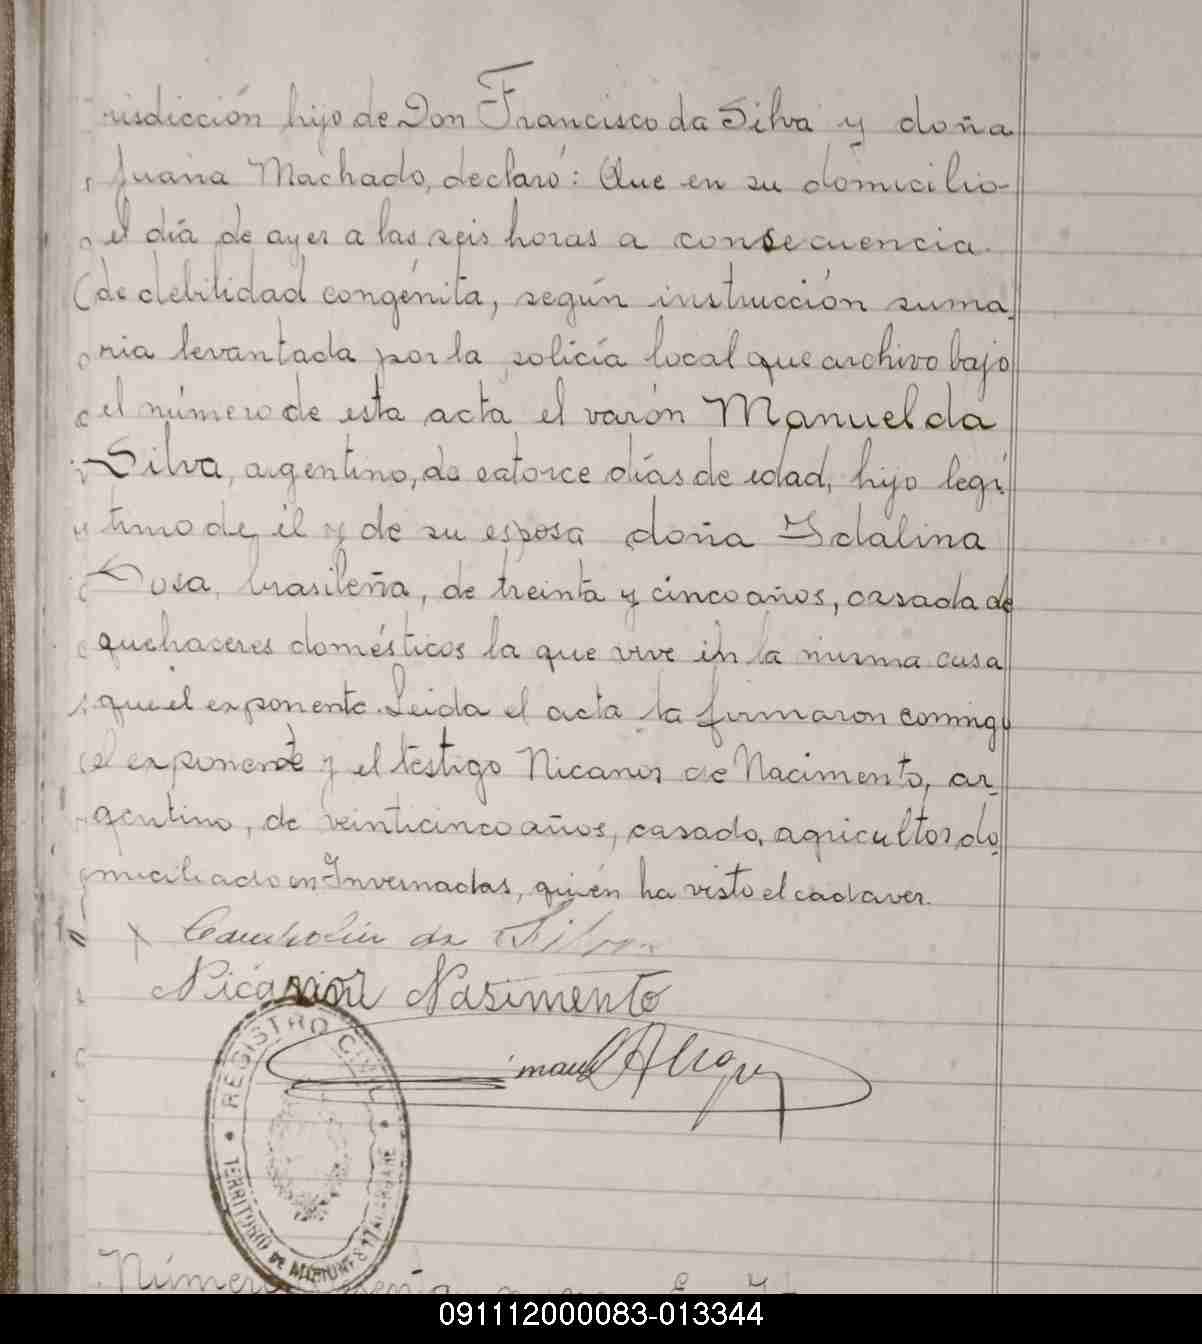 risdicción hijo de Don Francisco da Silva y doña
Juana Machado, declaró: Que en su domicilio
el día de ayer a las seis horas a consecuencia
de debilidad congénita, según instrucción suma
ria levantada por la policía local que archivo bajo
el número de esta acta el varón Manuel da
Silva, argentino, de catorce días de edad, hijo legí
timo de él y de su esposa doña Idalina
Rosa, brasileña, de treinta y cinco años, casada de
quehaceres domésticos la que vive en la misma casa
que el exponente. Leida el acta la firmaron conmigo
el exponente y el testigo Nicanor de Nacimento, ar
gentino, de veinticinco años, casado, agricultor, do
miciliado en Invernadas, quién ha visto el cadaver.
da Silva
Nicanor Nasimento
REGISTRO CIVIL
TERRITORIO DE MISIONES
Número
091112000083-013344